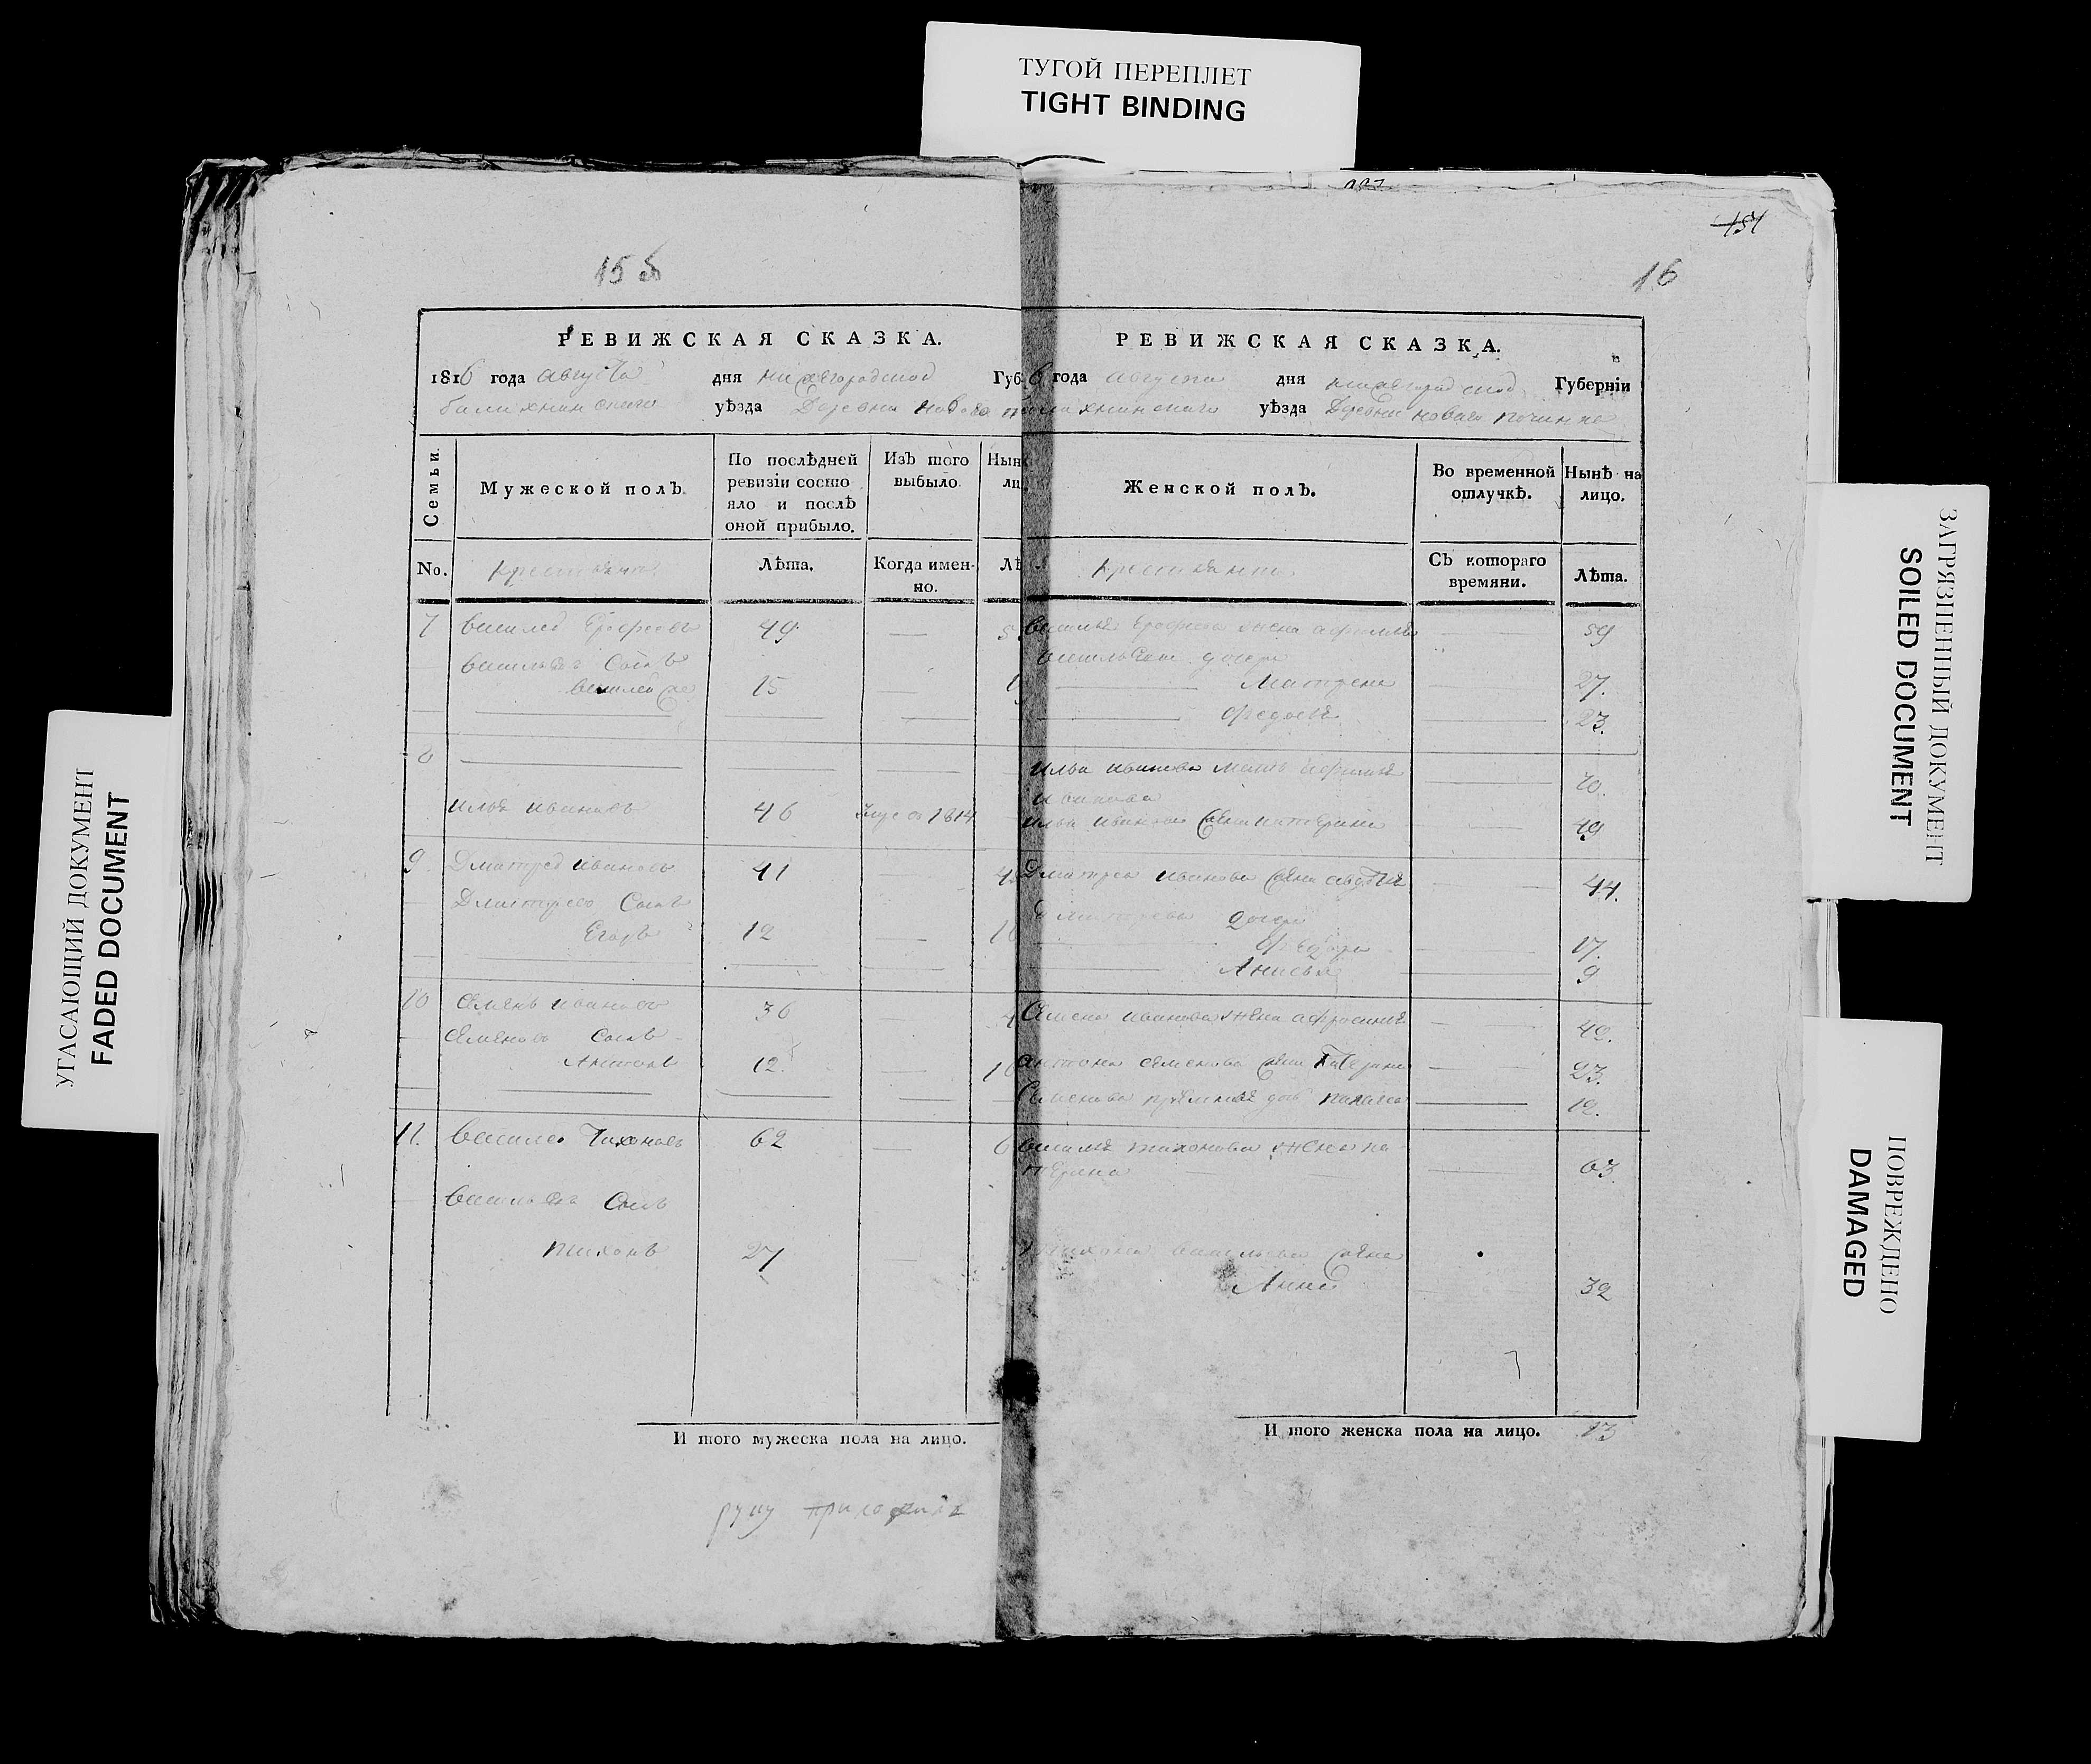 ТУГОЙ ПЕРЕПЛЕТ
TIGHT BINDING
УГАСАЮЩИЙ ДОКУМЕНТ
FADED DOCUMENT
15
РЕВИЖСКАЯ СКАЗКА.
1816 года августа дня нижегородской Губ
балахнинскаго уѣзда Деревни новова
Семьи.
Мужеской полъ.
По послѣдней ревизіи состояло и послѣ оной прибыло.
Изъ того выбыло.
Нын
ли
No.
крестьяне
Лѣта.
Когда именно.
Лѣ
7 василей Ерофеевъ 49 — 5
васильевъ Сынъ
15 — 1
8
илья ивановъ 46 1814
9 Дмитрей ивановъ 41 — 4
Дмитрево Сынъ
Егоръ 12 — 1
10 Семенъ ивановъ 36 — 4
Семеновъ Сынъ
Антонъ 12 — 1
11. василей Тихоновъ 62 — 6
васильевъ Сынъ
тихонъ 27 —
И того мужеска пола на лицо.
руку приложилъ
151
16
РЕВИЖСКАЯ СКАЗКА.
6 года августа дня нижегородской Губерніи
балахнинскаго уѣзда Деревни новаго починка
Женской полъ.
Во временной отлучкѣ.
Нынѣ на лицо.
крестьяне
Съ котораго времяни.
Лѣта.
василья Ерофеева жена 59
васильевы дочери
Матрена 27.
Федосья 23.
Ильи иванова мать 70.
иванова
ильи иванова жена катерина 49
Дмитрея иванова жена авдотья 44.
Дмитревы дочери
17.
Анисья 9
Семена иванова жена афросинья 42.
антона семенова жена катерина 23.
Семенова 12.
василья тихонова жена ка
терина 63.
тихона васильева жена
Анна 32
И того женска пола на лицо. 13
ЗАГРЯЗНЕННЫЙ ДОКУМЕНТ
SOILED DOCUMENT
ПОВРЕЖДЕНО
DAMAGED